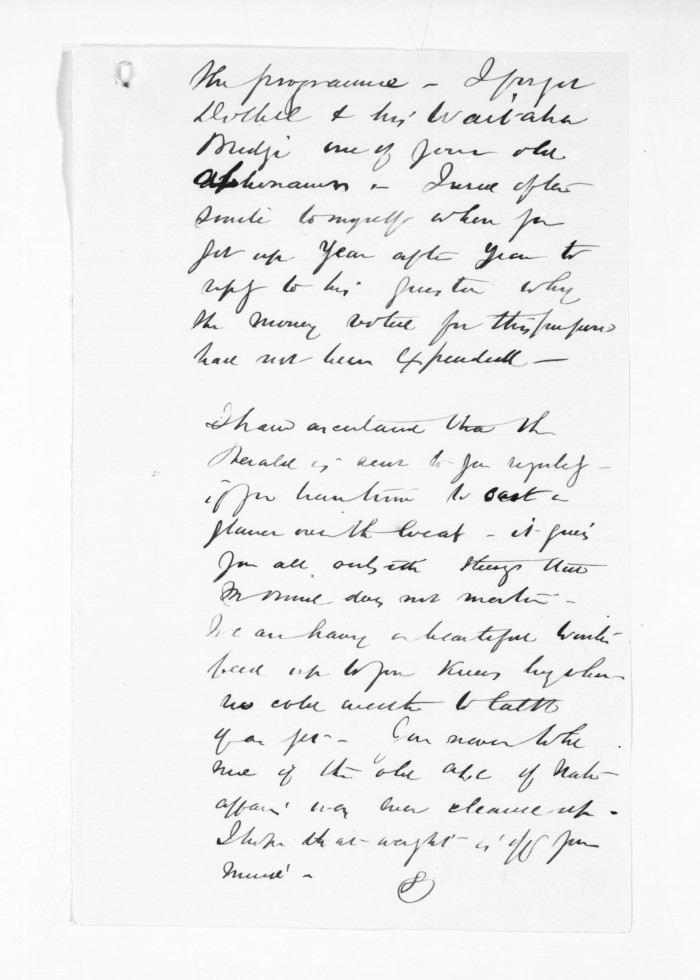 the programme - I forget
Dolbel & his Waitaha
Bridge one of your old
- I used often
smile to myself when you
got up Year after Year to
reply to his question why
the money voted for this purpose
had not been Expended -
I have that the
Herald is sent to you regularly -
if you have time to cast a
glance over the local - it gives
you all outside things that
does not mention -
We are having a beautiful Winter
feed up to your Knees
no cold weather to talk
of as yet - You never told
me if the old of Native
affairs was ever cleared up -
I hope that weight is off your
mind -
8